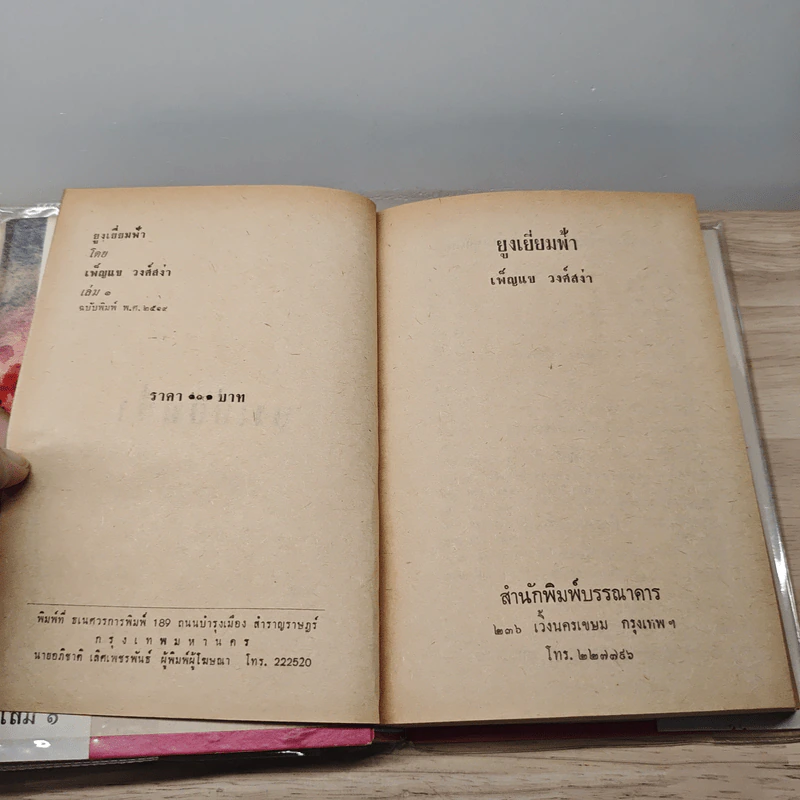 ยูงเยี่ยมฟ้า
โดย
เพ็ญแข วงศ์สง่า
เล่ม ๑
ฉบับพิมพ์ พ.ศ. ๒๕๑๙
ราคา ๑๐๑ บาท
พิมพ์ที่ ธเนศวรการพิมพ์ 189 ถนนบำรุงเมือง สำราญราษฎร์
กรุงเทพมหานคร
นายอภิชาติ เลิศเพชรพันธ์ ผู้พิมพ์ผู้โฆษณา โทร. 222520
ยูงเยี่ยมฟ้า
เพ็ญแข วงศ์สง่า
สำนักพิมพ์บรรณาคาร
๒๓๖ เวิ้งนครเขษม กรุงเทพ ฯ
โทร. ๒๒๗๗๙๖
เล่ม ๑